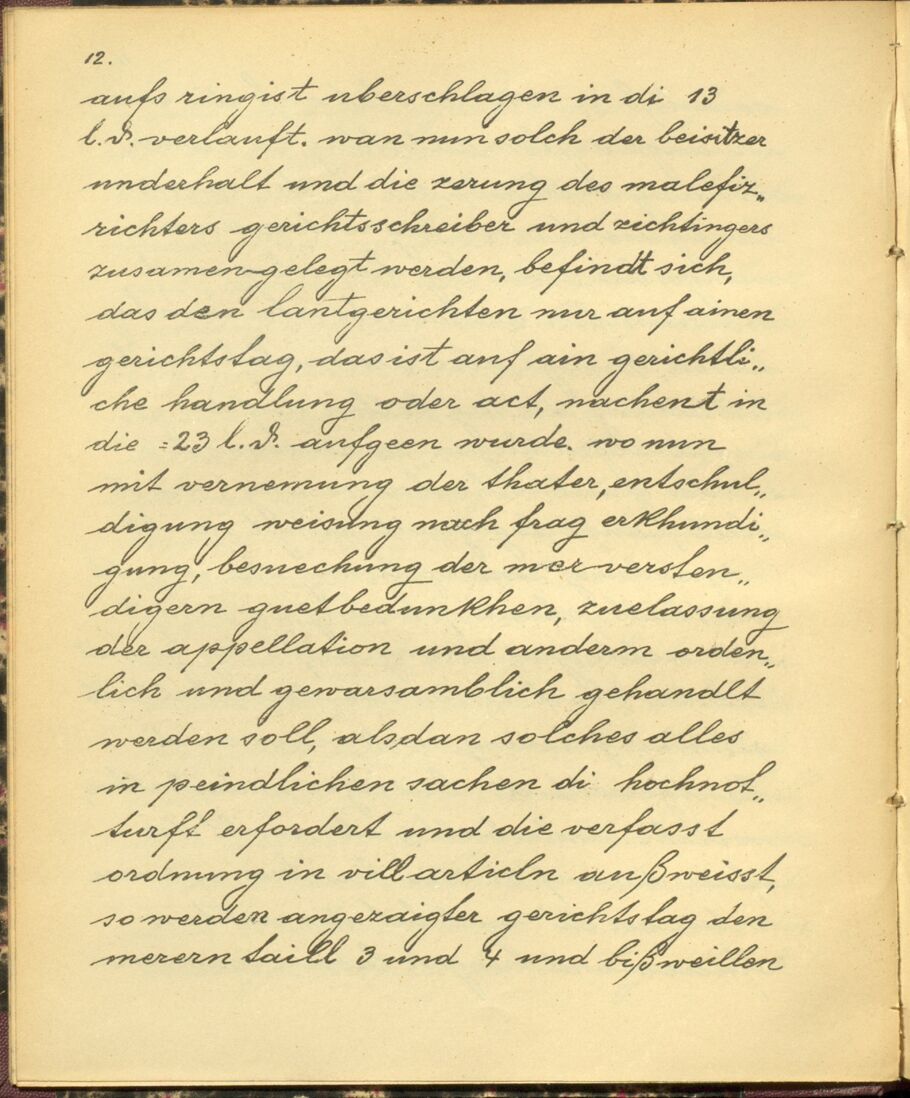 12.
aufs ringist uberschlagen in di 13
l. ₰. verlauft. wan nun solch der beisitzer
underhalt und die zerung des malefiz„
richters gerichtsschreiber und zichtingers
zusamen gelegt werden, befindt sich,
das den lantgerichten nur auf ainen
gerichtstag, das ist auf ain gerichtli„
che handlung oder act, nachent in
die =23 l. ₰. aufgeen wurde. wo nun
mit vernemung der thater, entschul„
digung weisung nach frag erkhundi„
gung, besuechung der mer versten„
digern guetbedunkhen, zuelassung
der appellation und anderm orden„
lich und gewarsamblich gehandlt
werden soll, alsdan solches alles
in peindlichen sachen di hochnot„
turft erfordert und die verfasst
ordnung in vill articln außweisst,
so werden angezaigter gerichtstag den
merern taill 3 und 4 und bißweillen